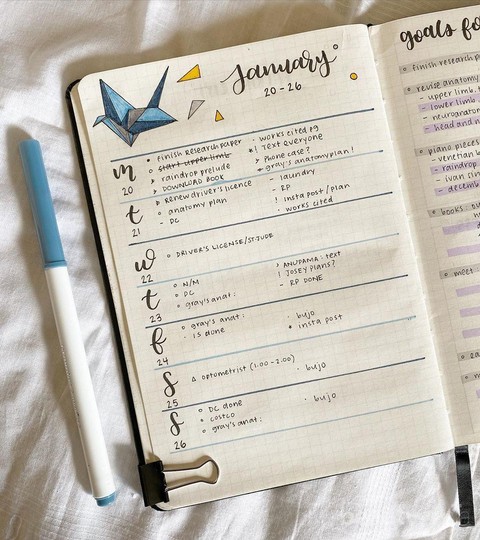 January
20-26
m
20
finish research paper
start upper limb
raindrop prelude
DOWNLOAD BOOK
works cited pg
! Text everyone
phone case?
gray's anatomy plan!
t
21
renew driver's licence
anatomy plan
- DC
- laundry
- RP
! insta post / plan
works cited
w
22
DRIVER'S LICENSE/ST.JUDE
t
23
N/M
DC
gray's anat:
> ANUPAMA: text
! JOSEY plans?
- RP DONE
f
24
gray's anat:
- is done
· bujo
insta post
s
25
optometrist (1:00-2:00)
· bujo
s
26
DC done
costco
gray's anat:
· bujo
goals fo
finish research p
revise anatomy
- upper limb, t
- lower limb
- neuroanato
- head and n
piano pieces
- venetian b
- raindrop
- ivan sin
- decemb
books
meet